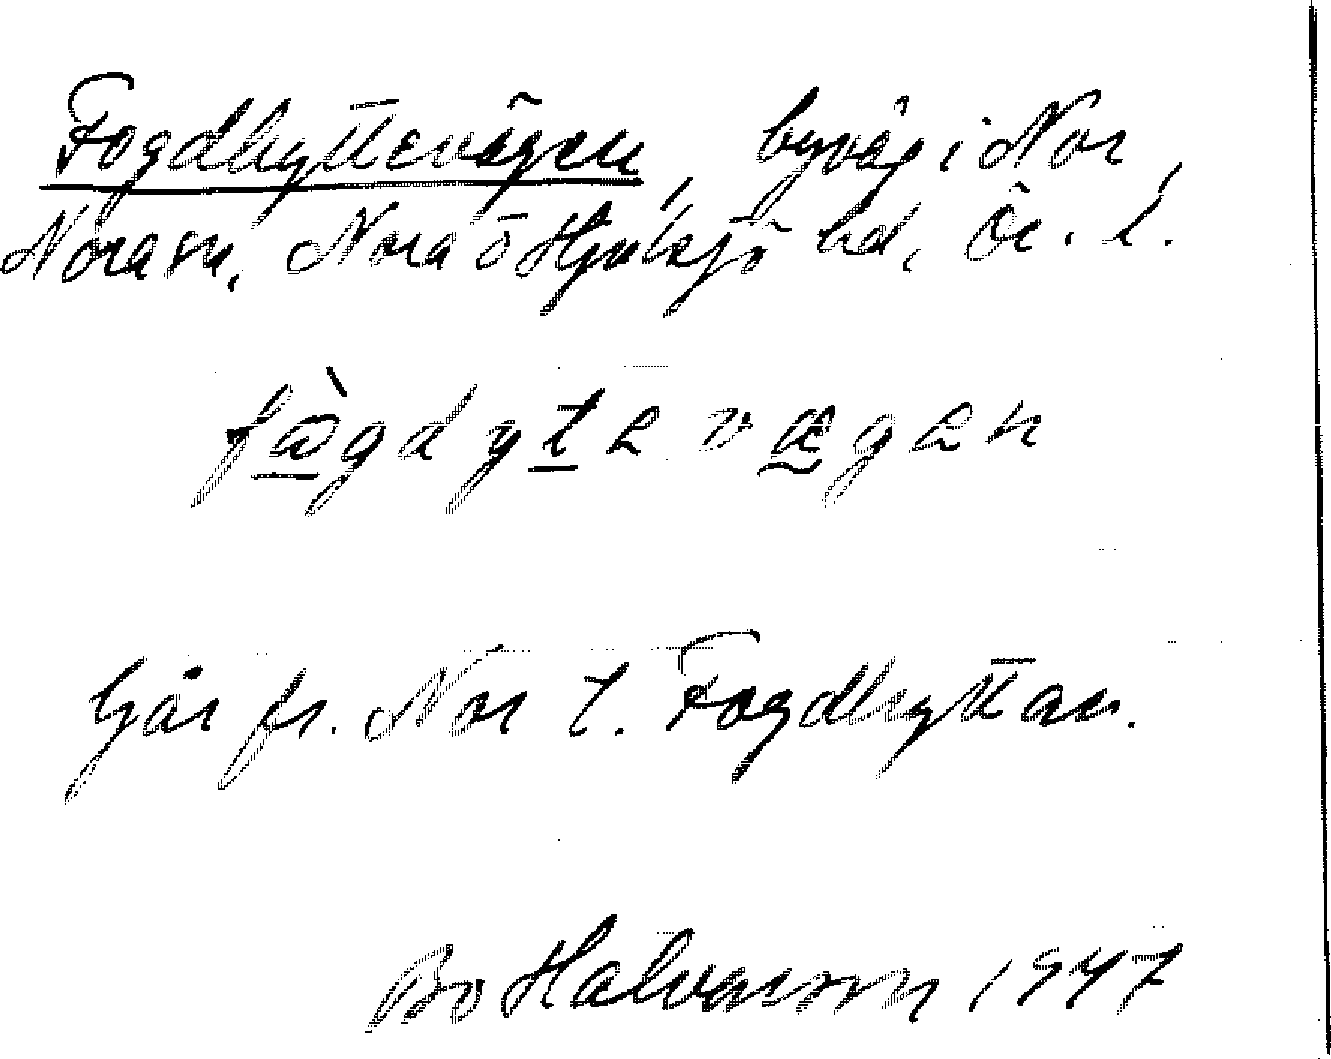 Fogdhyttevägen, byväg i Nor,
Nora sn, Nora o Hjulsjö hd, Ör. l.
fàgdytevægen
Går fr. Nor t. Fogdhyttan.
Bo Halvarson 1947